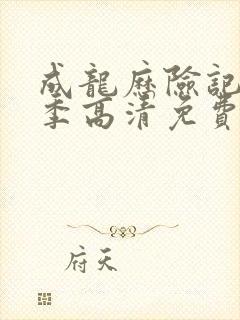 成龍歷險記
季高清免費
府天